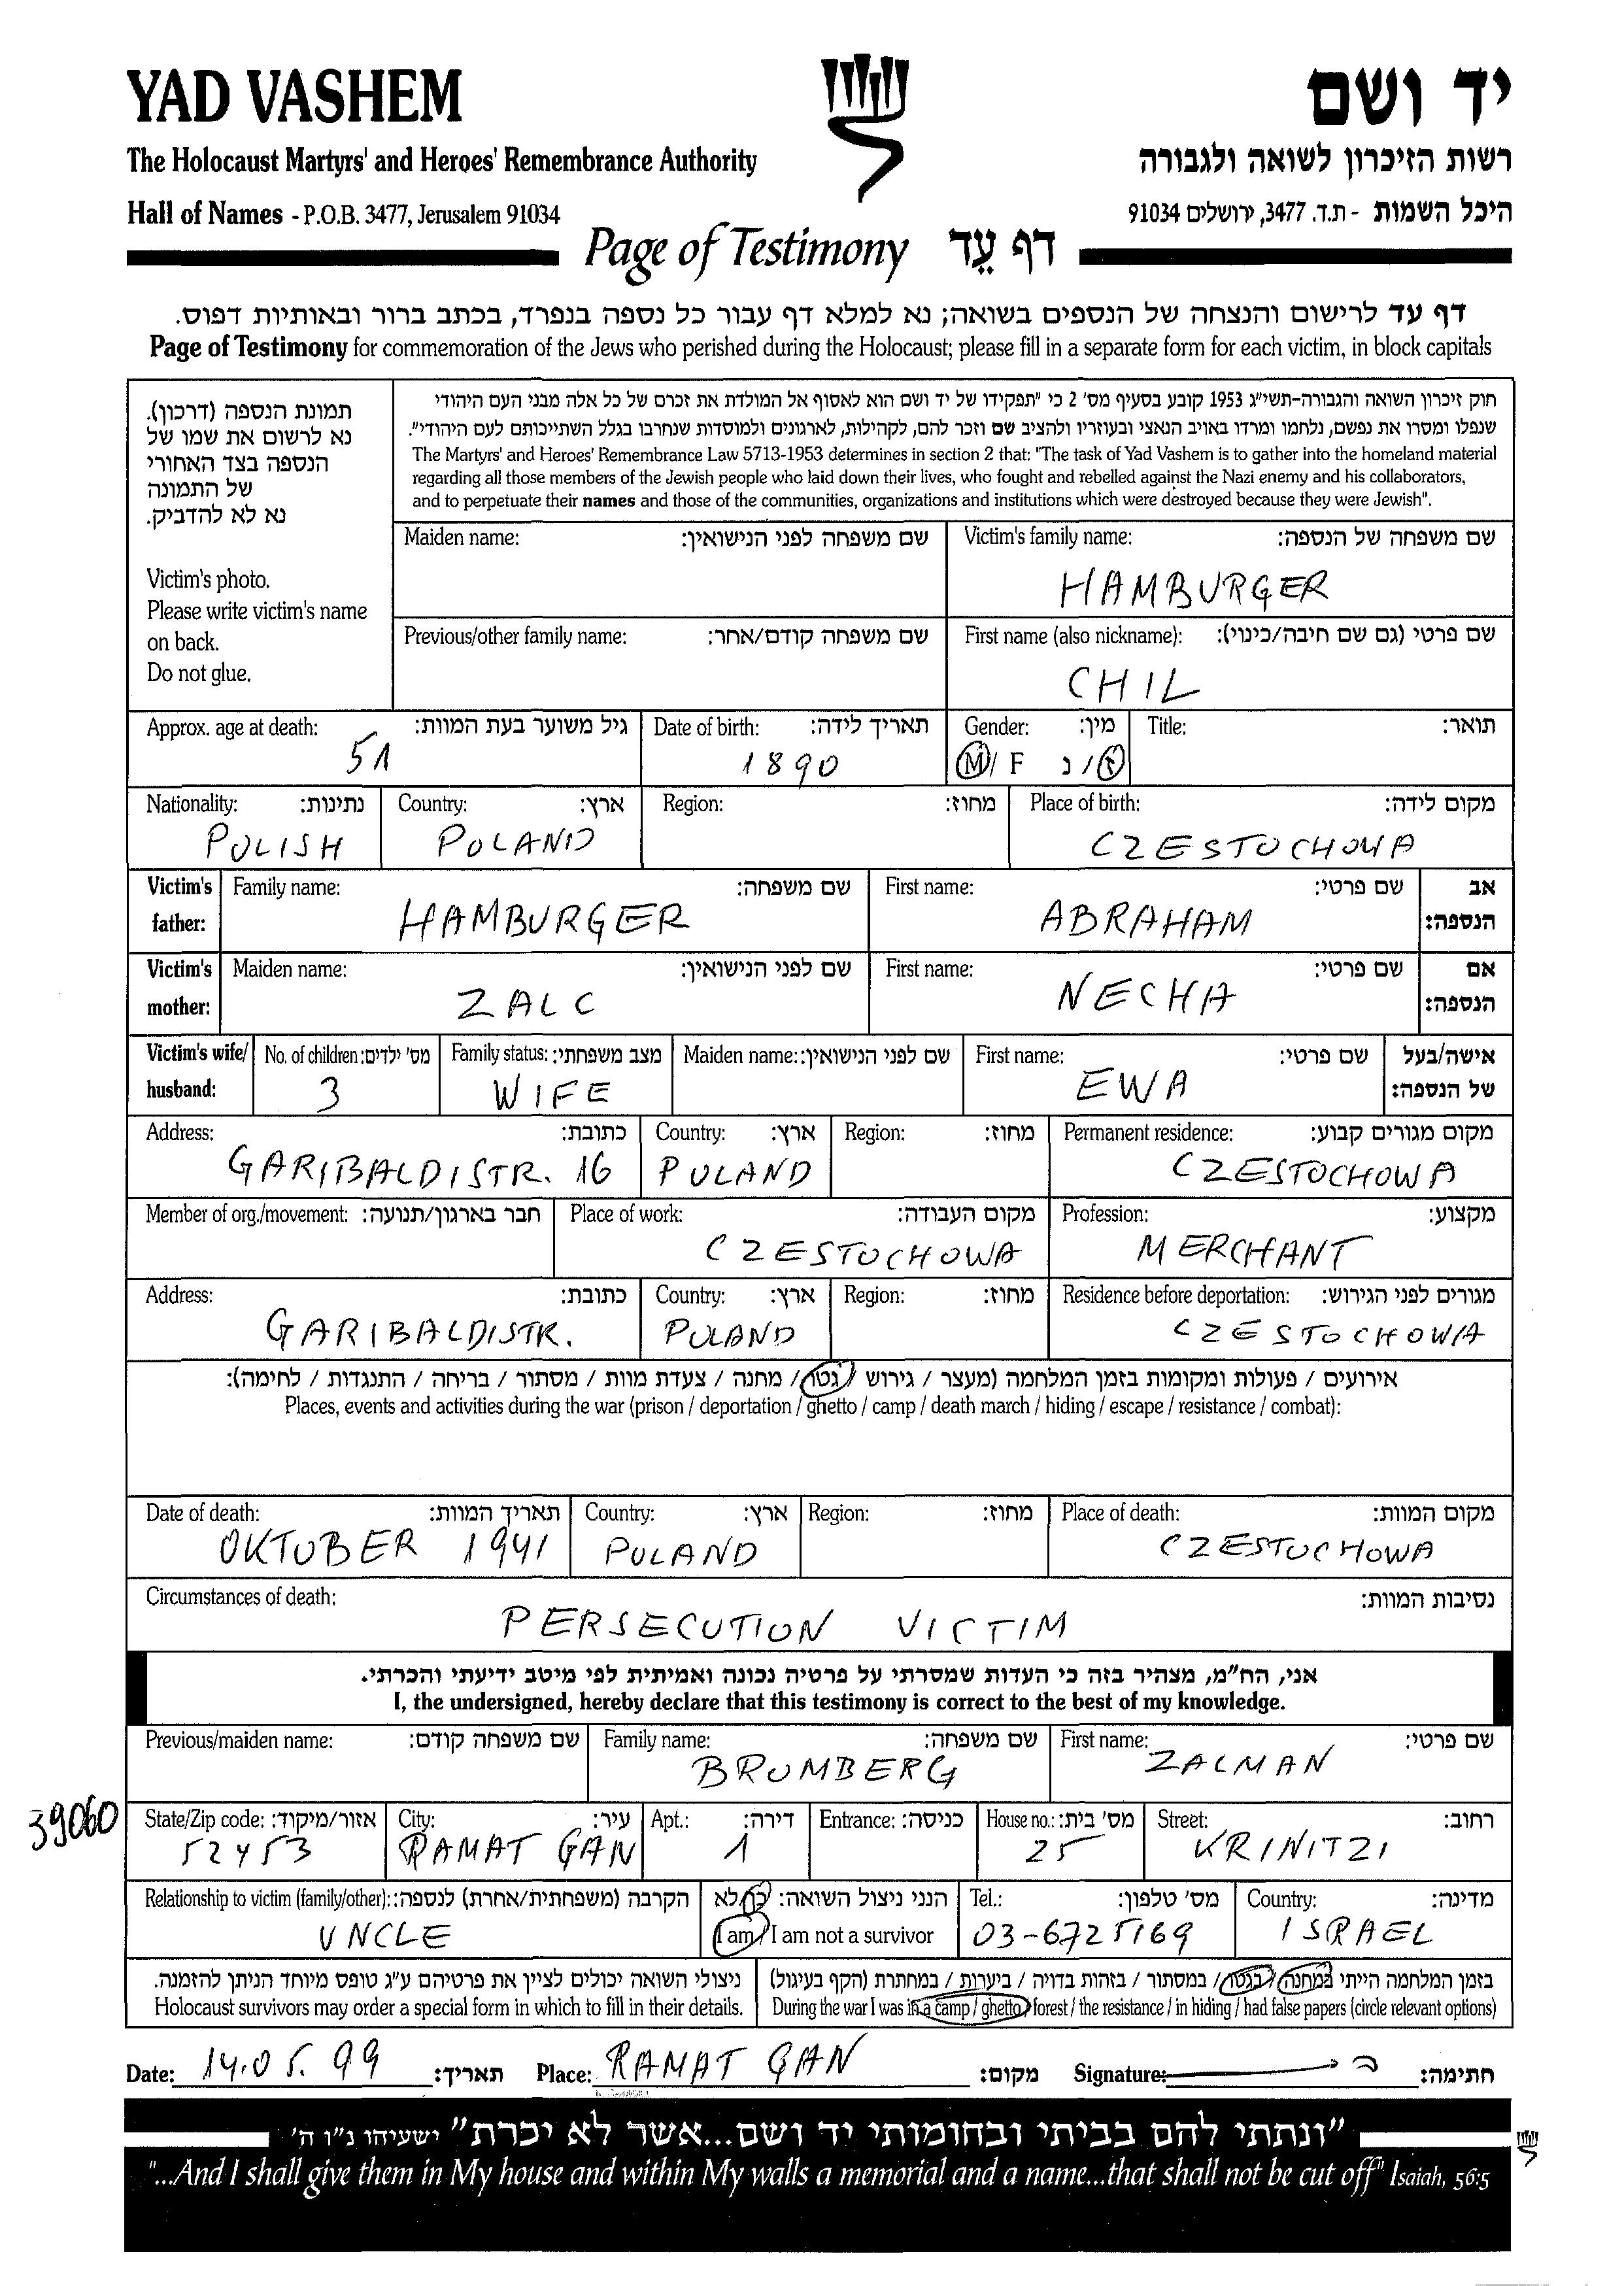 YAD VASHEM
יד ושם
The Holocaust Martyrs' and Heroes' Remembrance Authority
רשות הזיכרון לשואה ולגבורה
Hall of Names - P.O.B. 3477, Jerusalem 91034
היכל השמות - ת.ד. 3477, ירושלים 91034
Page of Testimony דף עֵד
דף עד לרישום והנצחה של הנספים בשואה; נא למלא דף עבור כל נספה בנפרד, בכתב ברור ובאותיות דפוס.
Page of Testimony for commemoration of the Jews who perished during the Holocaust; please fill in a separate form for each victim, in block capitals
תמונת הנספה (דרכון).
נא לרשום את שמו של
הנספה בצד האחורי
של התמונה
נא לא להדביק.
Victim's photo.
Please write victim's name
on back.
Do not glue.
חוק זיכרון השואה והגבורה-תשי"ג 1953 קובע בסעיף מס' 2 כי "תפקידו של יד ושם הוא לאסוף אל המולדת את זכרם של כל אלה מבני העם היהודי
שנפלו ומסרו את נפשם, נלחמו ומרדו באויב הנאצי ובעוזריו ולהציב שם וזכר להם, לקהילות, לארגונים ולמוסדות שנחרבו בגלל השתייכותם לעם היהודי".
The Martyrs' and Heroes' Remembrance Law 5713-1953 determines in section 2 that: "The task of Yad Vashem is to gather into the homeland material
regarding all those members of the Jewish people who laid down their lives, who fought and rebelled against the Nazi enemy and his collaborators,
and to perpetuate their names and those of the communities, organizations and institutions which were destroyed because they were Jewish".
Maiden name: שם משפחה לפני הנישואין: Victim's family name: שם משפחה של הנספה:
HAMBURGER
Previous/other family name: שם משפחה קודם/אחר: First name (also nickname): שם פרטי (גם שם חיבה/כינוי):
CHIL
Approx. age at death: גיל משוער בעת המוות: Date of birth: תאריך לידה: Gender: מין: Title: תואר:
51 1890 M/ F ז/נ
Nationality: נתינות: Country: ארץ: Region: מחוז: Place of birth: מקום לידה:
POLISH POLAND CZESTOCHOWA
Victim's father: Family name: שם משפחה: First name: שם פרטי: אב הנספה:
HAMBURGER ABRAHAM
Victim's mother: Maiden name: שם לפני הנישואין: First name: שם פרטי: אם הנספה:
ZALC NECHA
Victim's wife/ husband: No. of children: מס' ילדים: Family status: מצב משפחתי: Maiden name: שם לפני הנישואין: First name: שם פרטי: אישה/בעל של הנספה:
3 WIFE EWA
Address: כתובת: Country: ארץ: Region: מחוז: Permanent residence: מקום מגורים קבוע:
GARIBALDISTR. 16 POLAND CZESTOCHOWA
Member of org./movement: חבר בארגון/תנועה: Place of work: מקום העבודה: Profession: מקצוע:
CZESTOCHOWA MERCHANT
Address: כתובת: Country: ארץ: Region: מחוז: Residence before deportation: מגורים לפני הגירוש:
GARIBALDISTR. POLAND CZESTOCHOWA
אירועים / פעולות ומקומות בזמן המלחמה (מעצר / גירוש / גטו / מחנה / צעדת מוות / מסתור / בריחה / התנגדות / לחימה):
Places, events and activities during the war (prison / deportation / ghetto / camp / death march / hiding / escape / resistance / combat):
Date of death: תאריך המוות: Country: ארץ: Region: מחוז: Place of death: מקום המוות:
OKTOBER 1941 POLAND CZESTOCHOWA
Circumstances of death: נסיבות המוות:
PERSECUTION VICTIM
אני, הח"מ, מצהיר בזה כי העדות שמסרתי על פרטיה נכונה ואמיתית לפי מיטב ידיעתי והכרתי.
I, the undersigned, hereby declare that this testimony is correct to the best of my knowledge.
Previous/maiden name: שם משפחה קודם: Family name: שם משפחה: First name: שם פרטי:
BROMBERG ZALMAN
39060
State/Zip code: אזור/מיקוד: City: עיר: Apt.: דירה: Entrance: כניסה: House no.: מס' בית: Street: רחוב:
52453 RAMAT GAN 1 25 KRINITZI
Relationship to victim (family/other): הקרבה (משפחתית/אחרת) לנספה: הנני ניצול השואה: כן/לא Tel.: מס' טלפון: Country: מדינה:
UNCLE I am / I am not a survivor 03-6725169 ISRAEL
ניצולי השואה יכולים לציין את פרטיהם ע"ג טופס מיוחד הניתן להזמנה.
Holocaust survivors may order a special form in which to fill in their details.
בזמן המלחמה הייתי במחנה / בגטו / במסתור / בזהות בדויה / ביערות / במחתרת (הקף בעיגול)
During the war I was in a camp / ghetto / forest / the resistance / in hiding / had false papers (circle relevant options)
Date: 14.05.99 תאריך: Place: RAMAT GAN מקום: Signature: חתימה:
"ונתתי להם בביתי ובחומותי יד ושם...אשר לא יכרת" ישעיהו נ"ו ה'
"...And I shall give them in My house and within My walls a memorial and a name...that shall not be cut off" Isaiah, 56:5